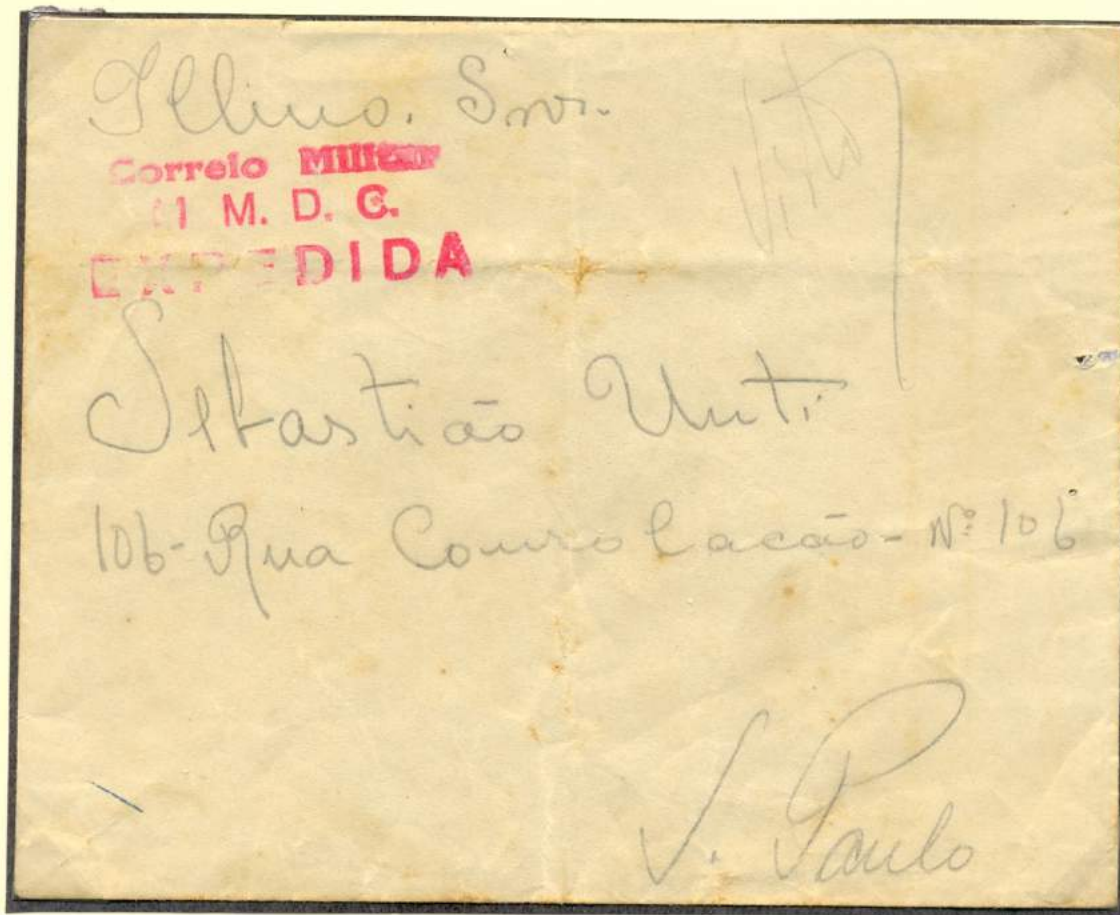 Illmo. Snr.
Visto
Correio Militar
M. D. C.
EXPEDIDA
Sebastião Unti
106-Rua Consolacão-Nº 106
S. Paulo